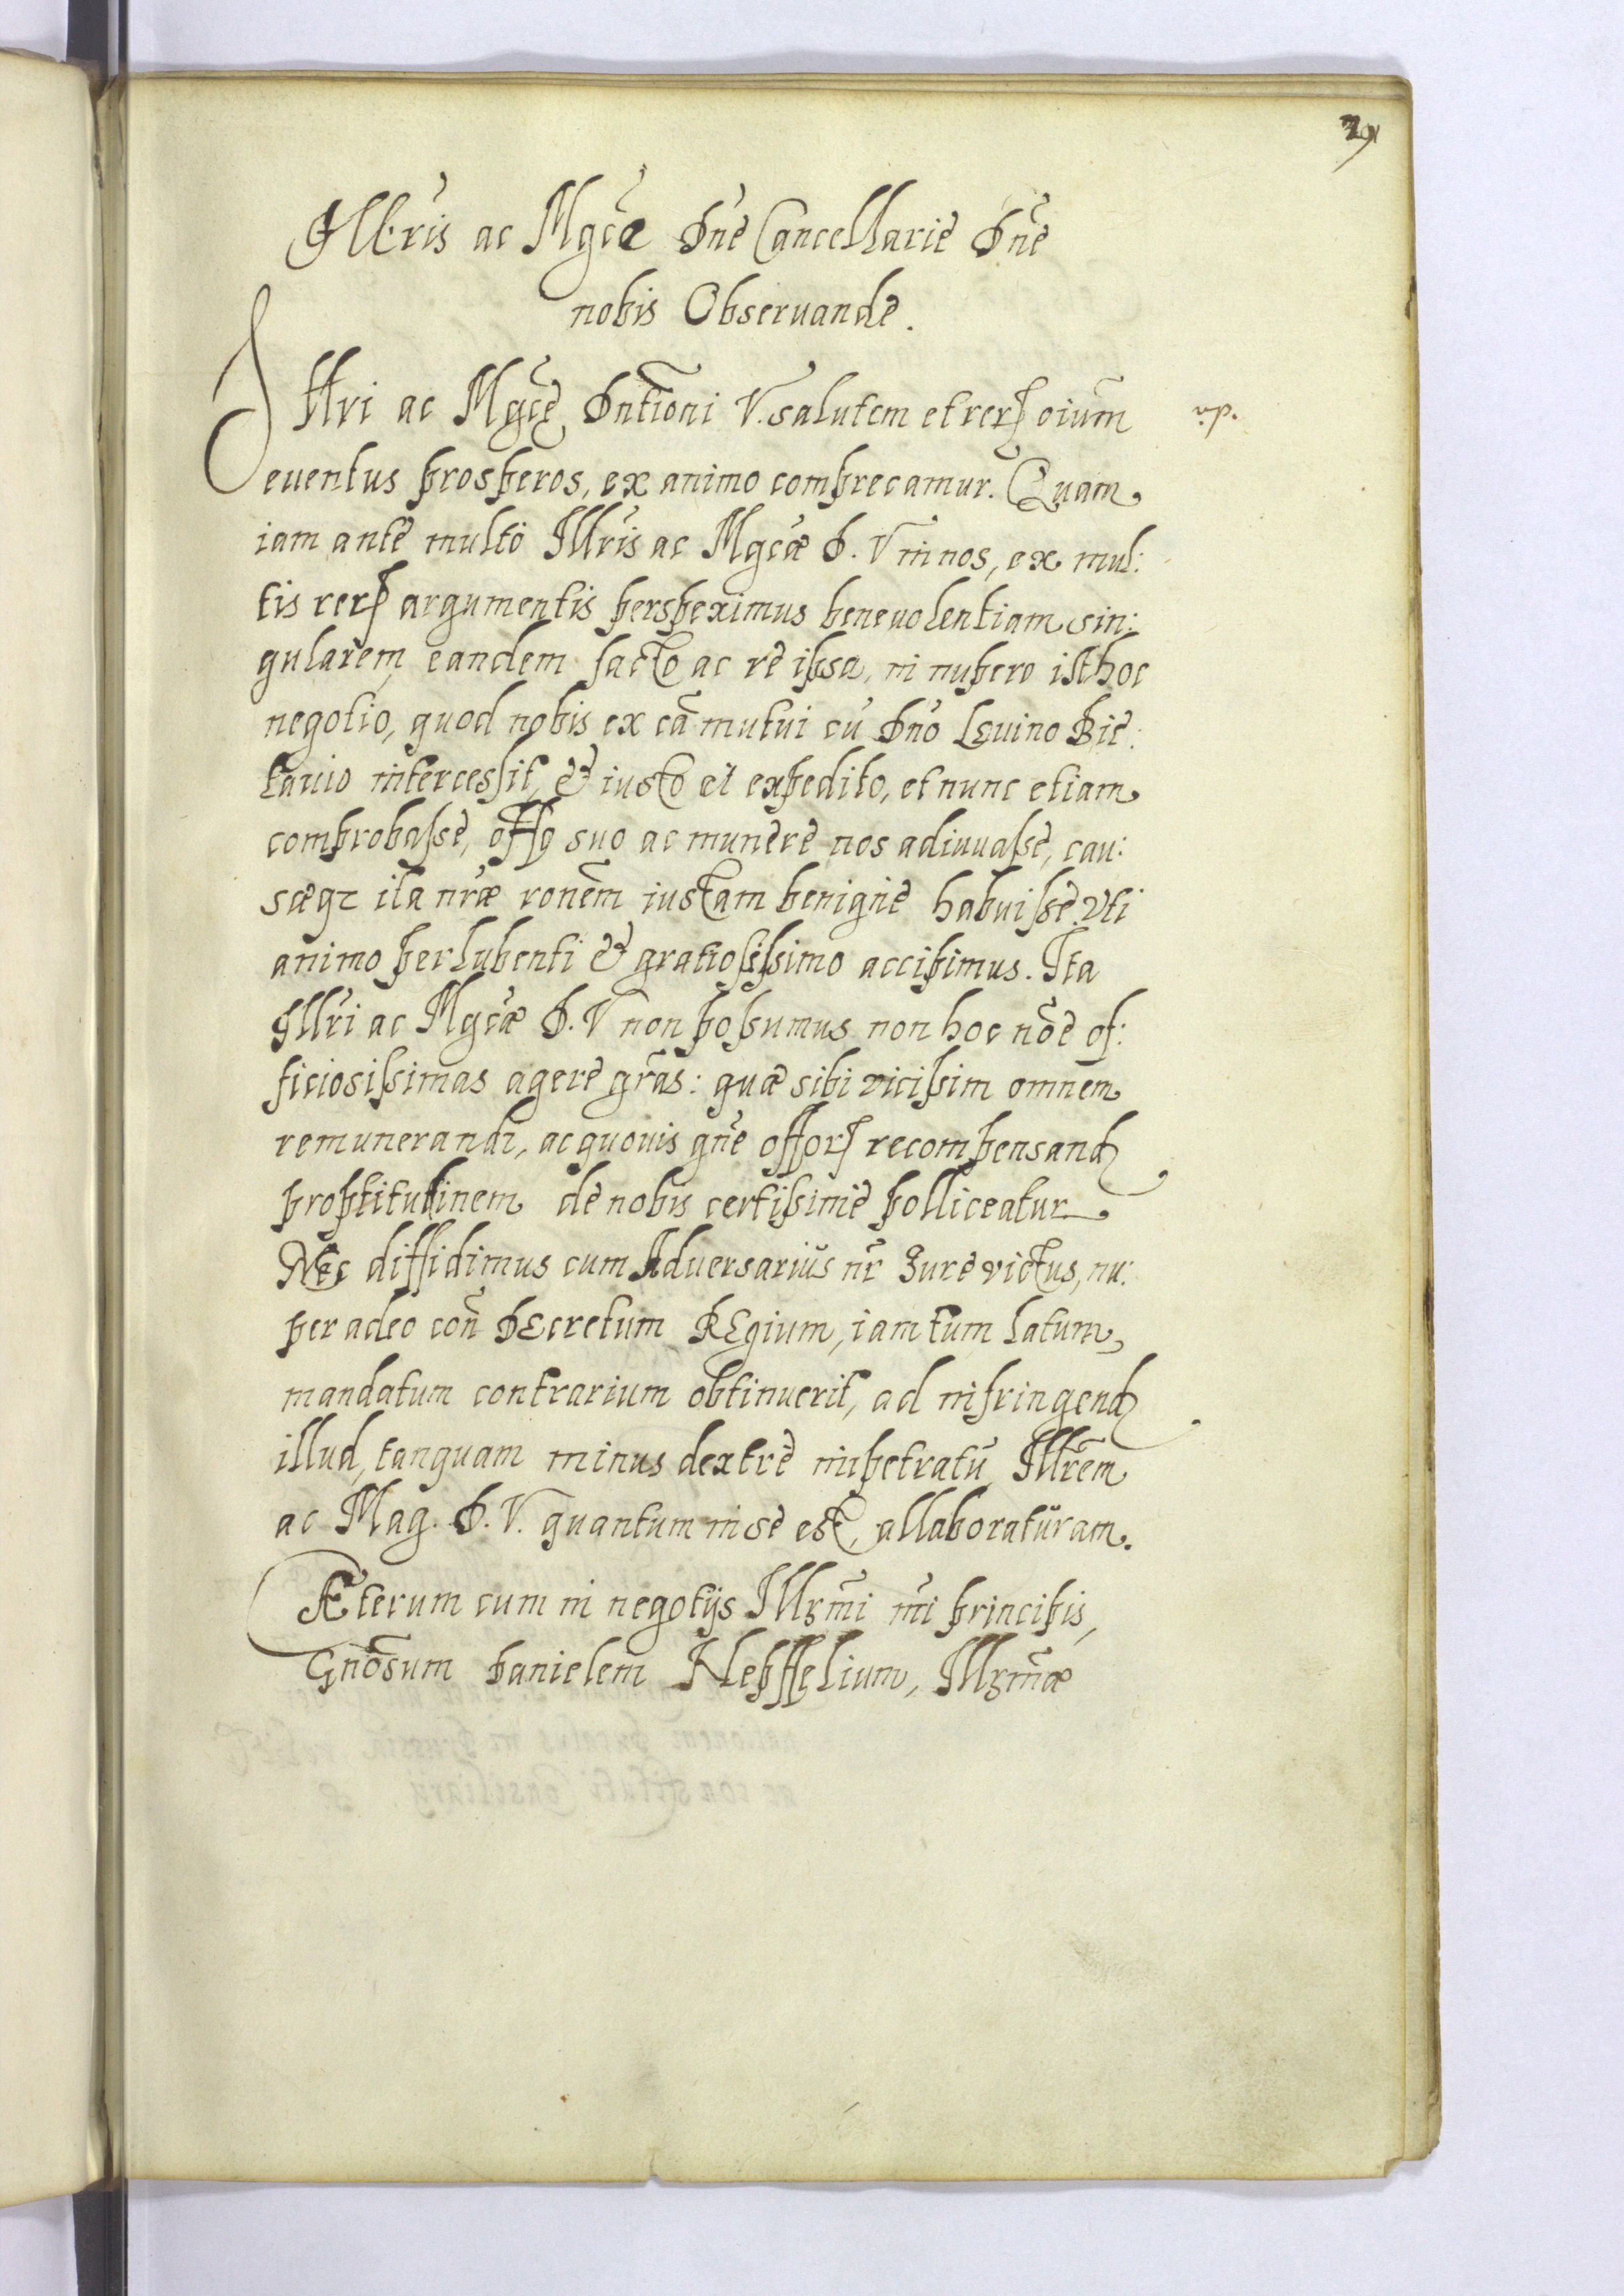 29
Illris ac Mgcæ Dne Cancellarie Dne
nobis Observande.
Illri ac Mgcę Dntioni V. salutem et rerꝝ oium
euentus prosperos, ex animo comprecamur. Quam
iam ante multò Illris ac Mgcæ D. V in nos, ex mul:
tis rerꝝ argumentis perspeximus beneuolentiam sin:
gularem, eandem facto ac re ipsa, in nupero isthoc
negotio, quod nobis ex cã mutui cũ Dno Leuino Bie:
tauio intercessit, & iusto et expedito, et nunc etiam
comprobasse, offo suo ac munere nos adiuuasse, cau:
sæqz ita nræ ronem iustam benigne habuisse uti
animo perlubenti & gratiosissimo accipimus. Ita
Illri ac Mgcæ D. V non possumus non hoc noe of:
ficiosissimas agere gras: quæ sibi vicissim omnem
remunerandi, ac quouis gne offorꝝ recompensand
proptitudinem de nobis certissime polliceatur
Nec diffidimus cum Aduersarius nr Iure victus, nu:
per adeo con Decretum Regium, iam tum latum,
mandatum contrarium obtinuerit, ad infringend
illud, tanquam minus dextre impetratũ Illrem
ac Mag. D. V. quantum in se est, allaboraturam.
Cæterum cum in negotijs Illsmi nri principis,
Gnosum Danielem Klepffelium, Illsmæ